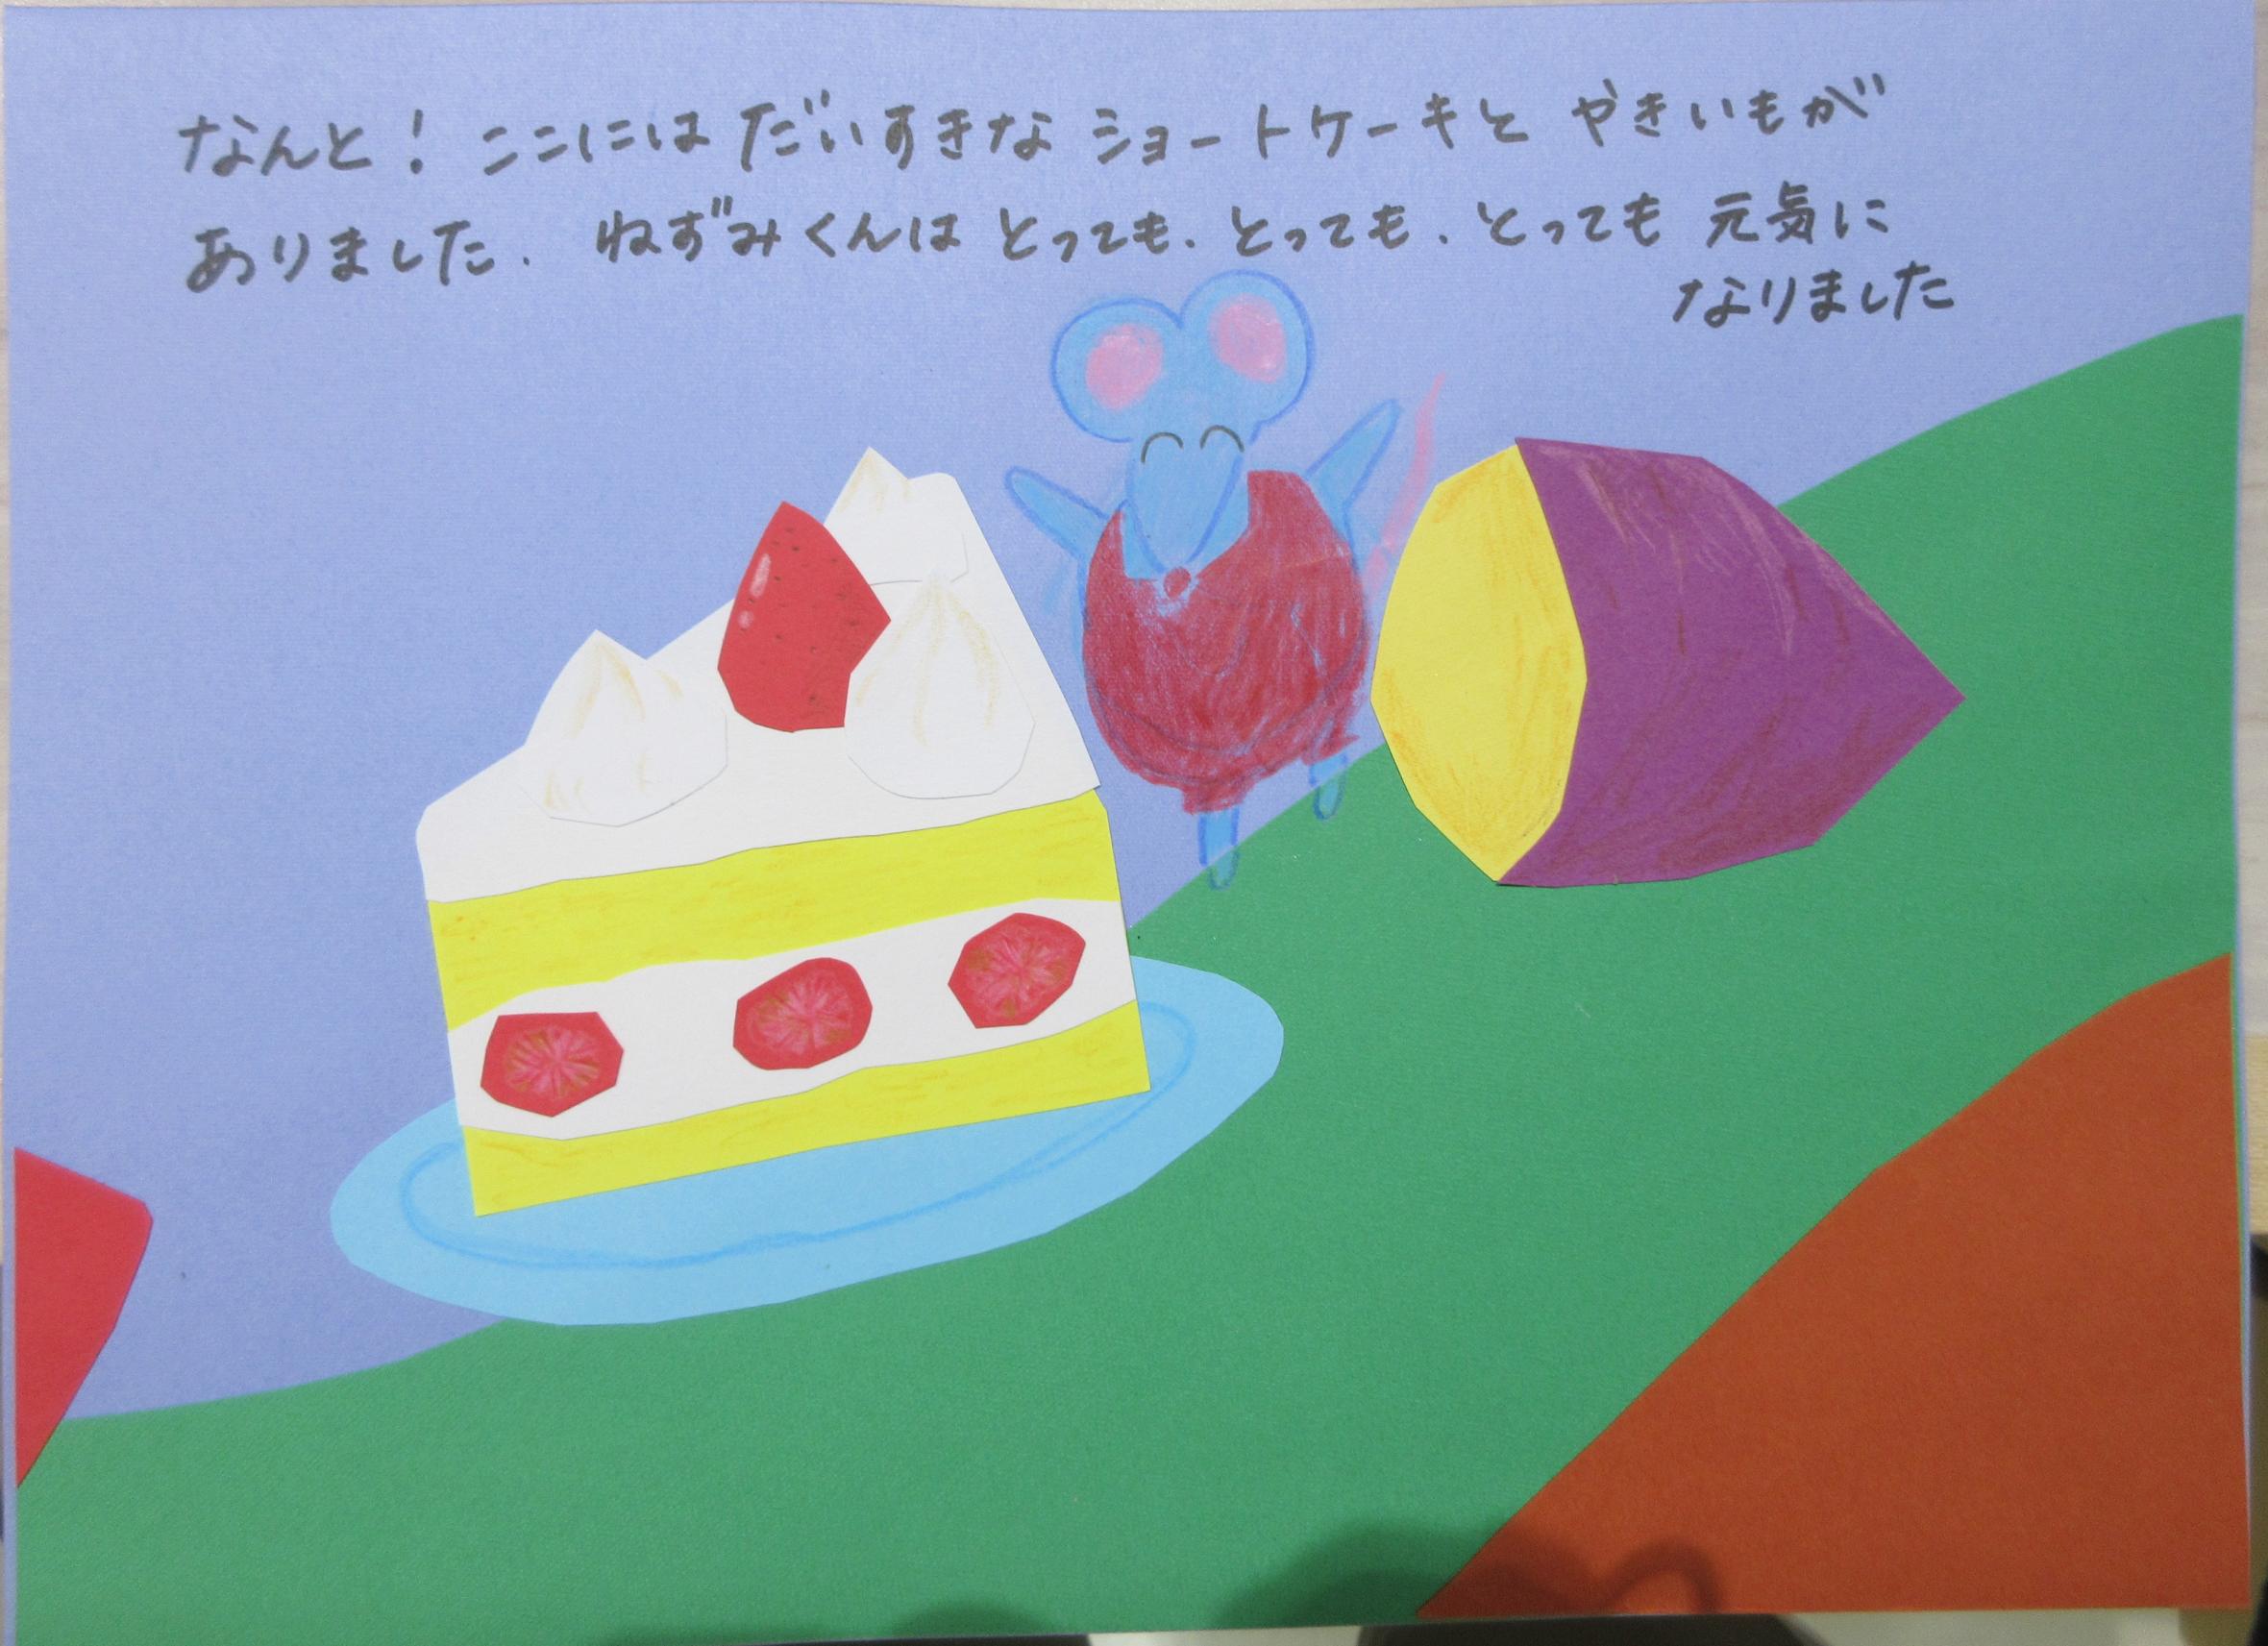 なんと！ ここには だいすきな ショートケーキと やきいもが
ありました. ねずみくんは とっても. とっても. とっても 元気に
なりました